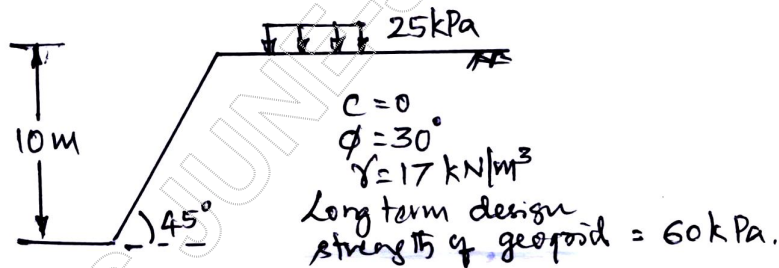 25kPa
10m
45°
C = 0
φ = 30°
γ = 17 kN/m³
Long term design
strength of geogrid = 60kPa.
JUNE